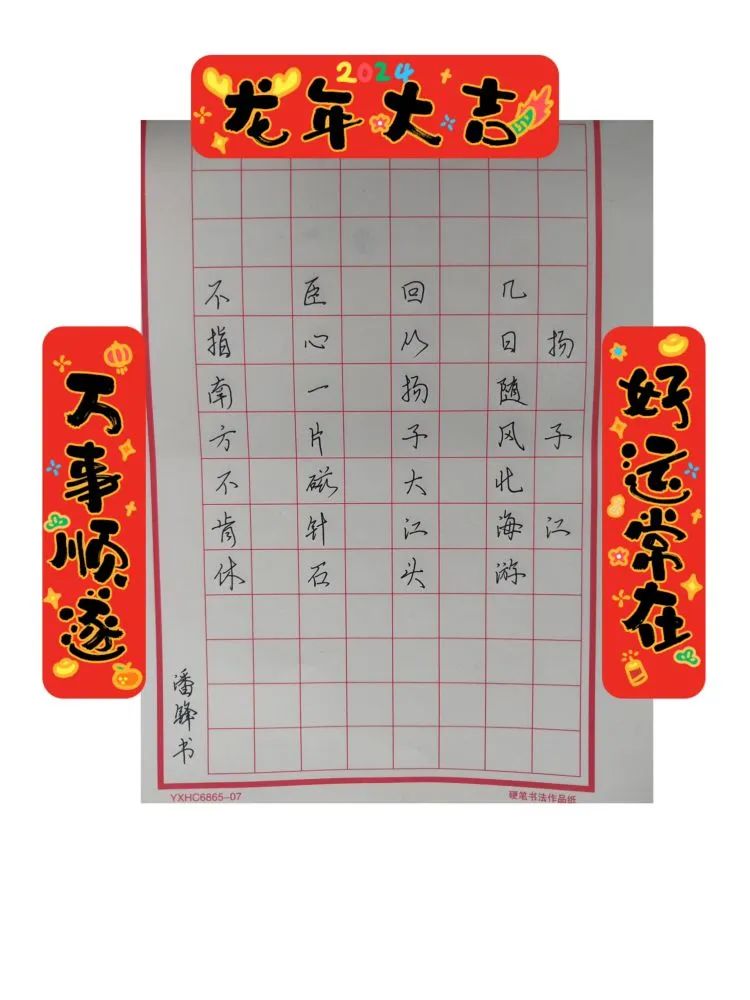 2024
龙年大吉
好运常在
万事顺遂
扬子江
几日随风北海游
回从扬子大江头
臣心一片磁针石
不指南方不肯休
潘书
YXHC6865-07
硬笔书法作品纸